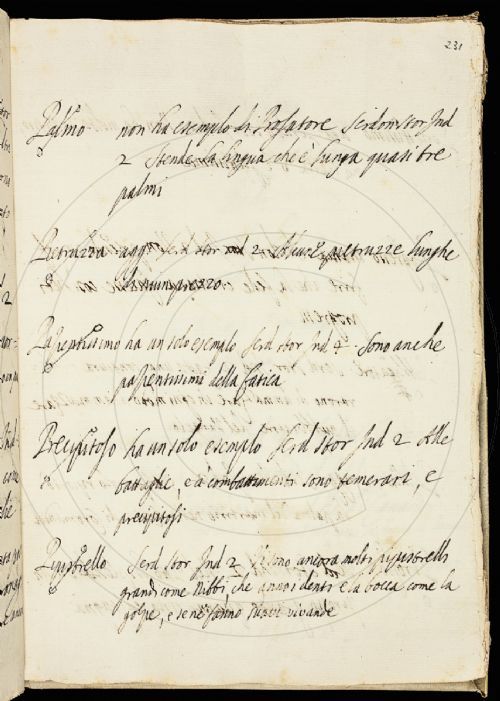 231
Palmo non ha esempio di Prosatore Serdon stor Ind
2 Stende la lingua che è lunga quasi tre
palmi
Pietruzza agg Serd stor Ind 2 pietruzze lunghe
Pazientissimo ha un solo esempio Serd stor Ind 4 Sono anche
pazientissimi della fatica
Precipitoso ha un solo esempio Serd Stor Ind 2 Alle
battaglie, e a combattimenti sono temerari, e
precipitosi
Pipistrello Serd Stor Ind 2 Vi sono ancora molti pipistrelli
grandi come Nibbi, che anno i denti e la bocca come la
golpe, e se ne fanno vivande